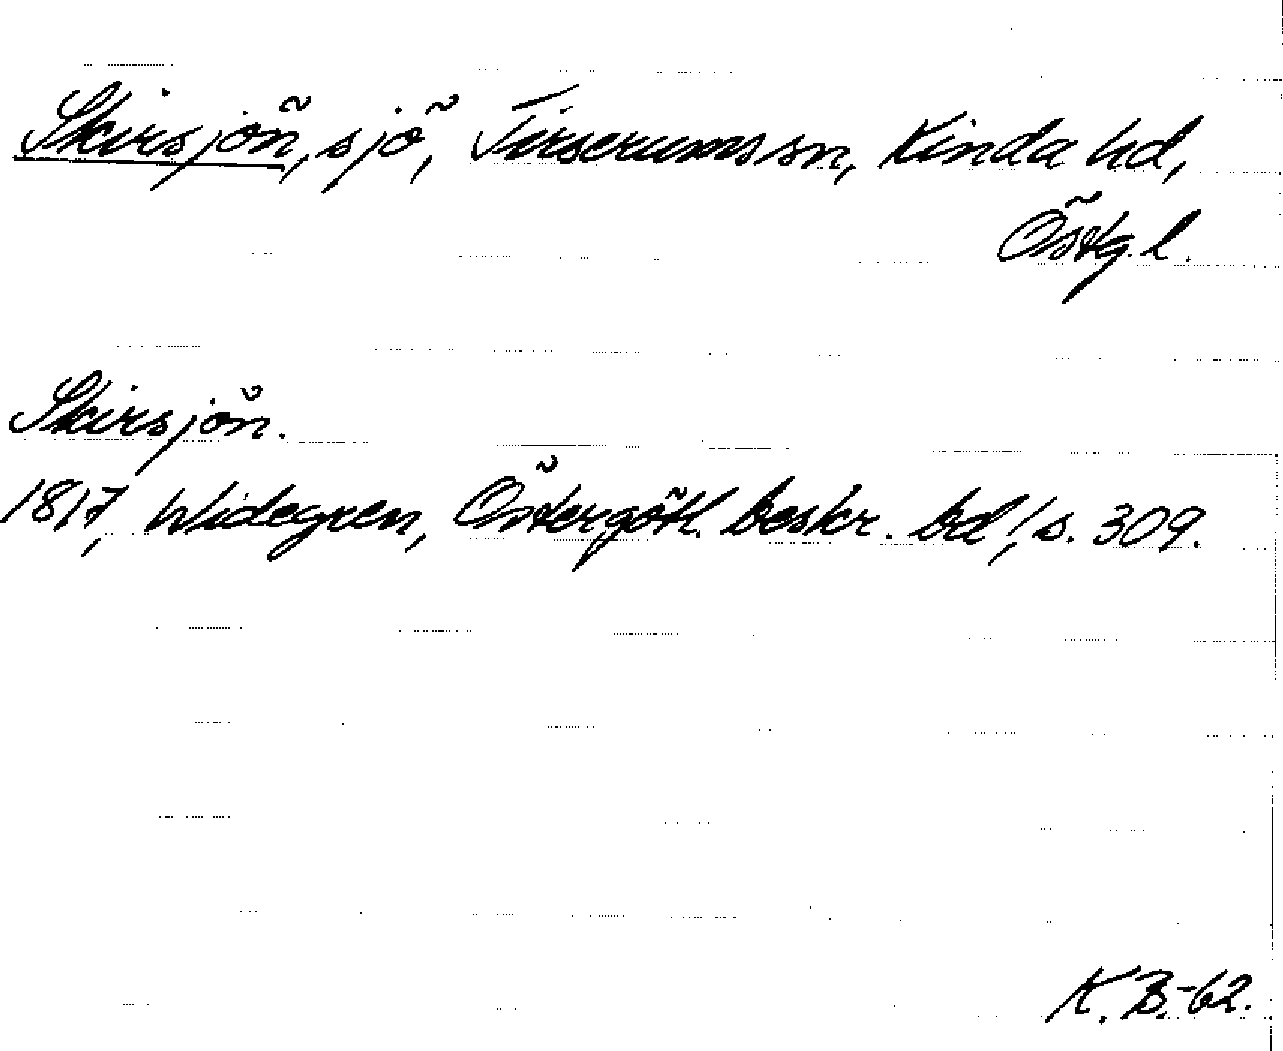 Skirsjön, sjö, Tirserums sn, Kinda hd,
Östg. l.
Skirsjön.
1817, Widegren, Östergötl. beskr. bd 1, s. 309.
K. B.-62.